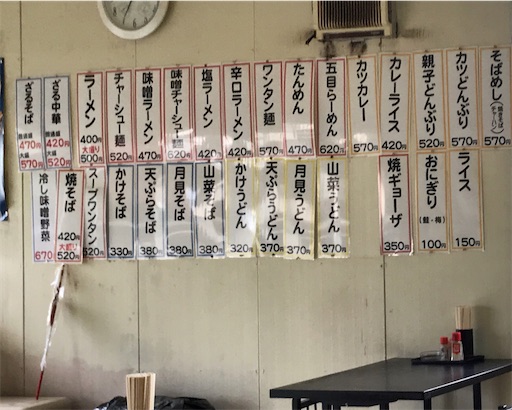 そばめし
(焼きそばチャーハン)
570円
カツどんぶり
570円
親子どんぶり
520円
カレーライス
420円
カツカレー
570円
五目らーめん
620円
たんめん
470円
ワンタン麺
570円
辛口ラーメン
420円
塩ラーメン
420円
味噌チャーシュー麺
620円
味噌ラーメン
470円
チャーシュー麺
520円
ラーメン
400円
大盛り
500円
ざる中華
普通盛
420円
大盛
520円
ざるそば
普通盛
470円
大盛
570円
ライス
150円
おにぎり
(鮭・梅)
100円
焼ギョーザ
350円
山菜うどん
370円
月見うどん
370円
天ぷらうどん
370円
かけうどん
320円
山菜そば
380円
月見そば
380円
天ぷらそば
380円
かけそば
330円
スープワンタン
520円
焼そば
420円
大盛り
520円
冷し味噌野菜
670